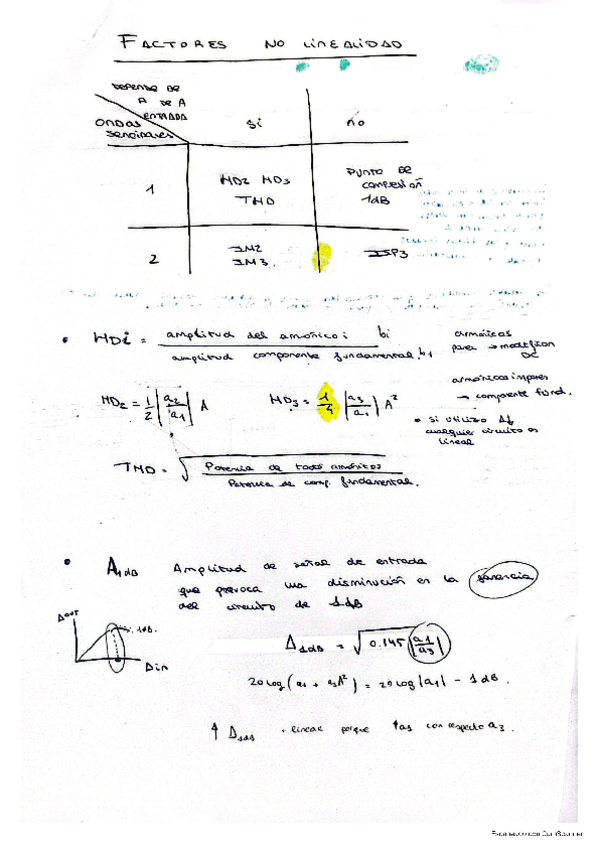 FACTORES NO LINEALIDAD
DEPENDE DE
A DE A
ENTRADA
ONDAS
SENOIDALES
Sí
no
1
HD2 HD3
THD
PUNTO DE
COMPRESIÓN
1dB
2
IM2
IM3.
IIP3
• HDi = amplitud del armónico i bi
amplitud componente fundamental. b1
armónicos
para → modifican
DC
HD2 = 1/2 |a2/a1| A
HD3 = 1/4 |a3/a1| A²
armónicos impares
→ componente fund.
• si utilizo Af
cualquier circuito es
lineal
THD = √ Potencia de todos armónicos
Potencia de comp. fundamental.
• A1dB Amplitud de señal de entrada
que provoca una disminución en la ganancia
del circuito de 1dB
Aout
1dB.
Ain
A1dB = √ 0.145 |a1/a3|
20log(a1 + a3A²) = 20log|a1| - 1dB.
↑ A1dB + lineal porque ↑a1 con respecto a3.
Escaneado con CamScanner